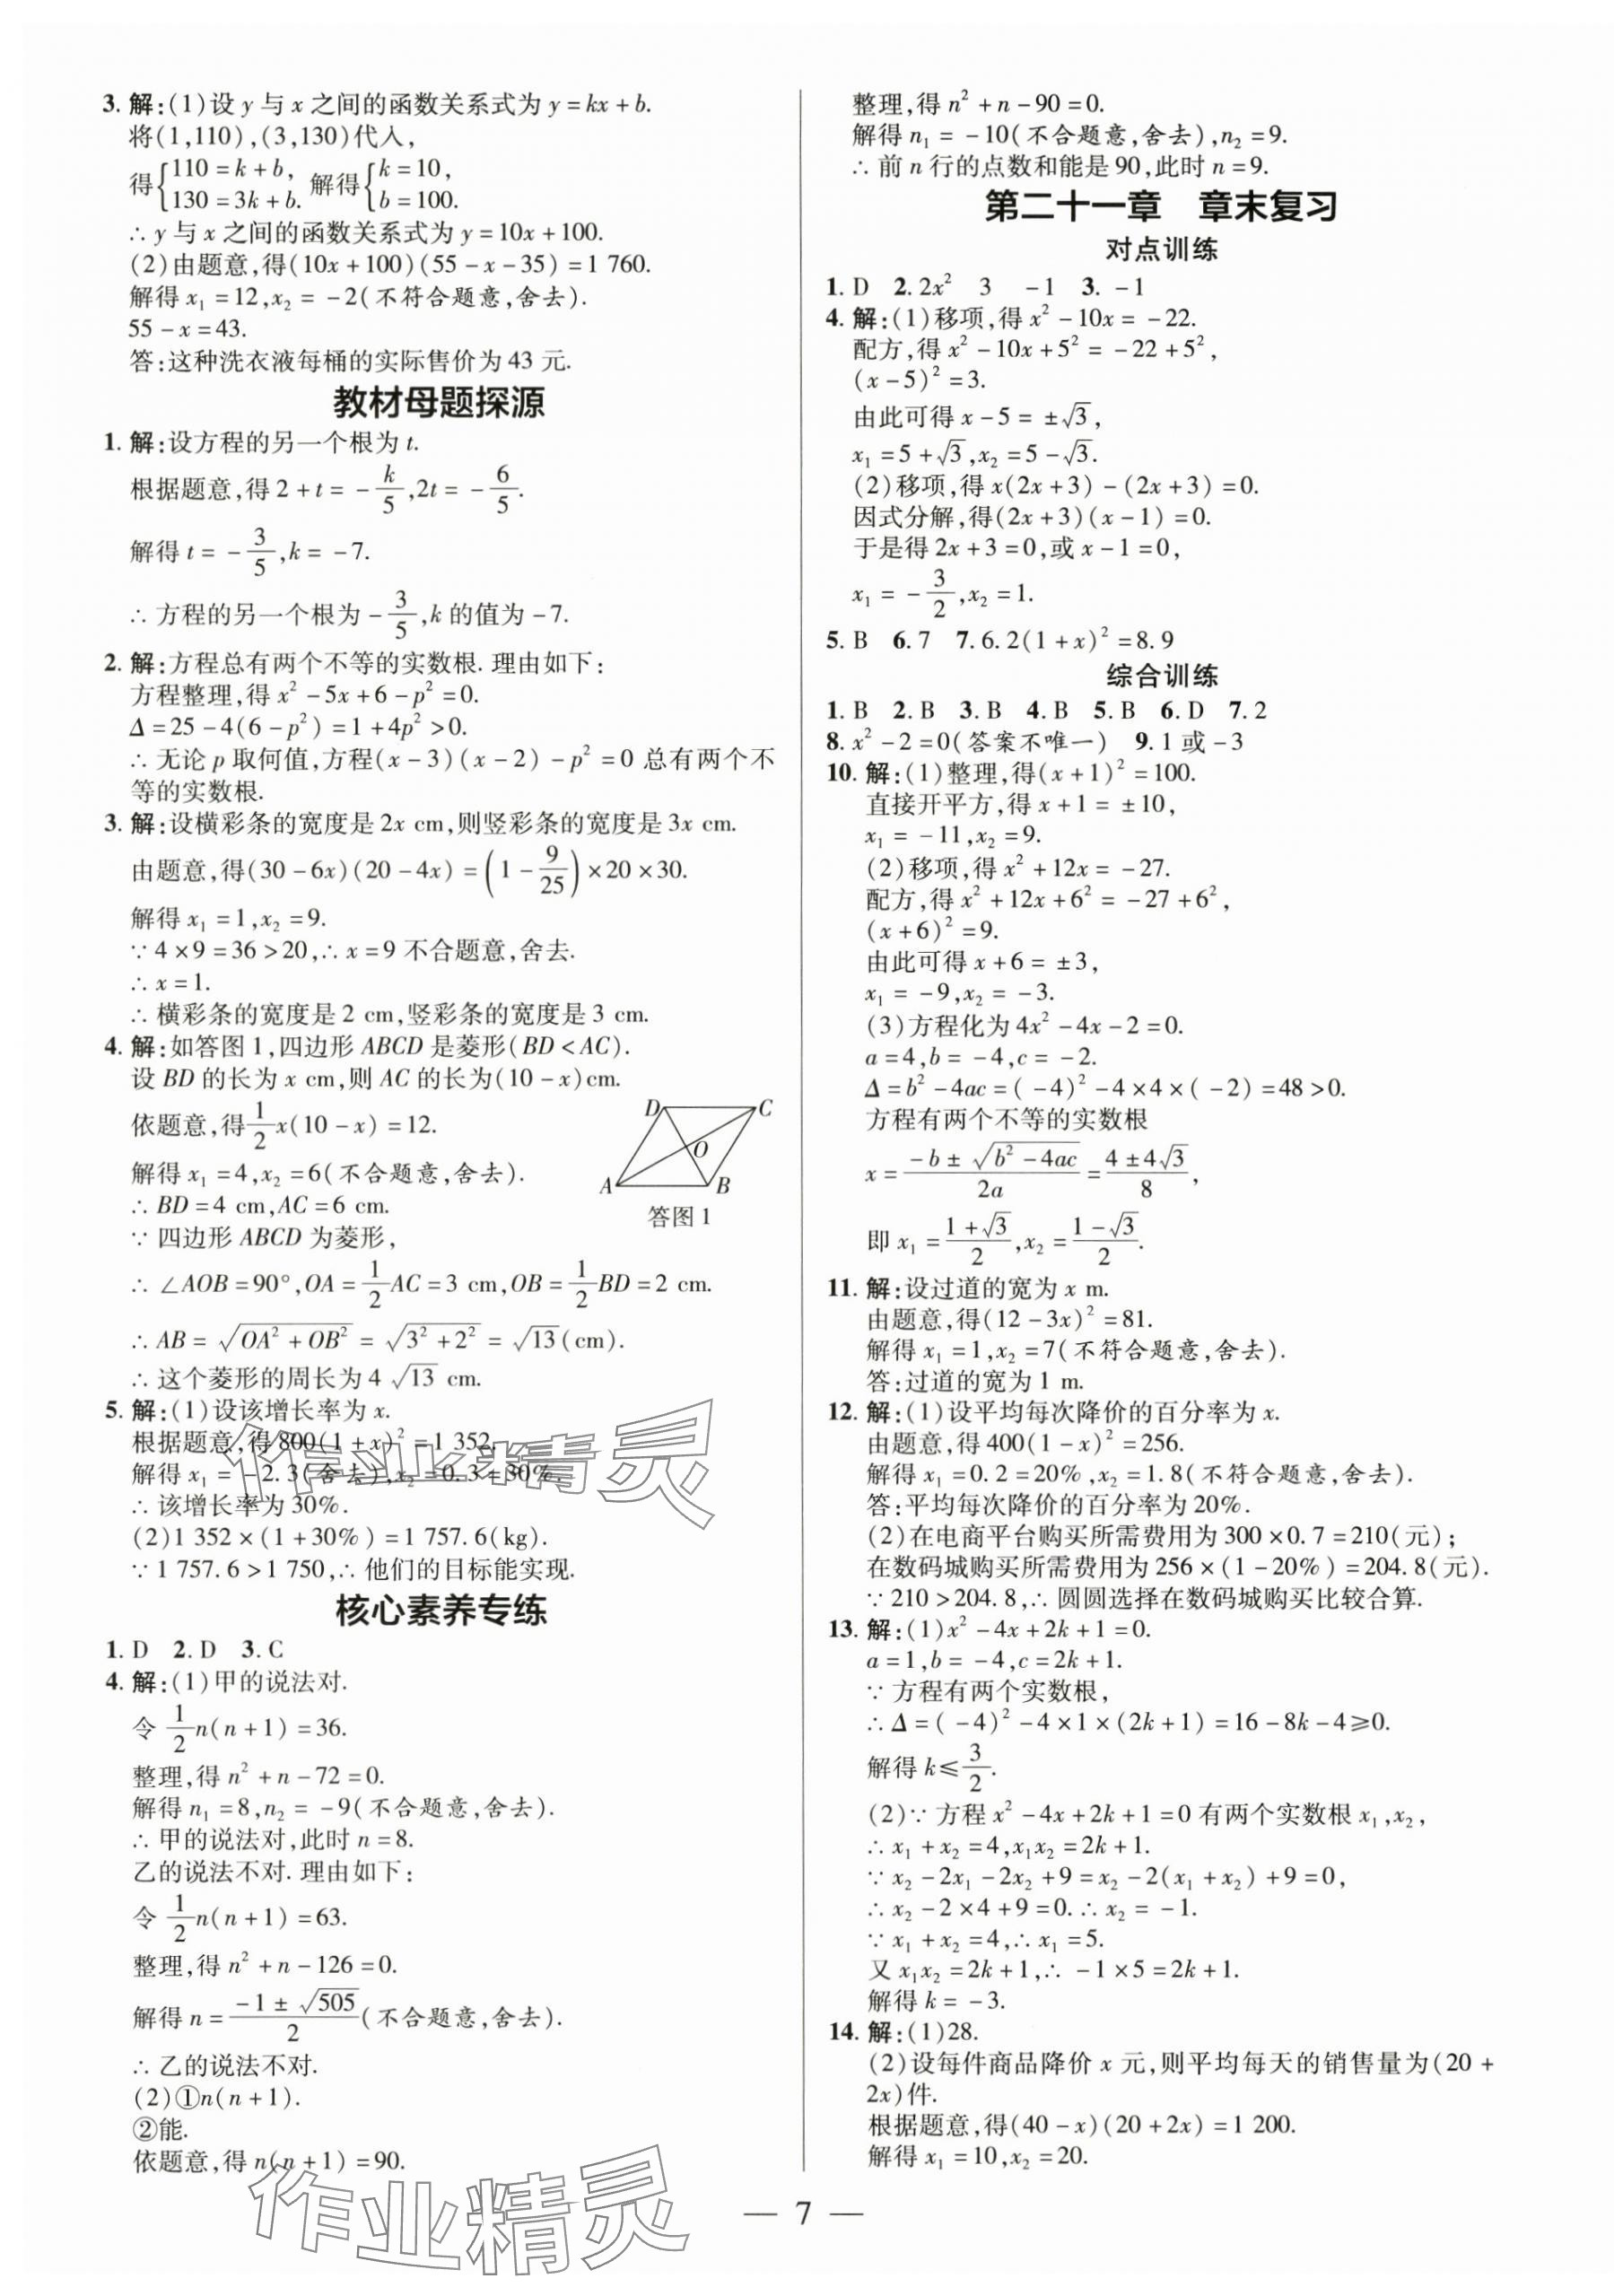 3. 解:(1)设 y 与 x 之间的函数关系式为 y=kx+b.
将(1,110),(3,130)代入,
得{110=k+b, 130=3k+b. 解得{k=10, b=100.
∴ y 与 x 之间的函数关系式为 y=10x+100.
(2)由题意,得(10x+100)(55-x-35)=1 760.
解得 x₁=12,x₂=-2(不符合题意,舍去).
55-x=43.
答:这种洗衣液每桶的实际售价为 43 元.
教材母题探源
1. 解:设方程的另一个根为 t.
根据题意,得 2+t=-k/5,2t=-6/5.
解得 t=-3/5,k=-7.
∴ 方程的另一个根为-3/5,k 的值为-7.
2. 解:方程总有两个不等的实数根. 理由如下:
方程整理,得 x²-5x+6-p²=0.
Δ=25-4(6-p²)=1+4p²>0.
∴ 无论 p 取何值,方程(x-3)(x-2)-p²=0 总有两个不
等的实数根.
3. 解:设横彩条的宽度是 2x cm,则竖彩条的宽度是 3x cm.
由题意,得(30-6x)(20-4x)=(1-9/25)×20×30.
解得 x₁=1,x₂=9.
∵ 4×9=36>20,∴ x=9 不合题意,舍去.
∴ x=1.
∴ 横彩条的宽度是 2 cm,竖彩条的宽度是 3 cm.
4. 解:如答图 1,四边形 ABCD 是菱形(BD<AC).
设 BD 的长为 x cm,则 AC 的长为(10-x)cm.
依题意,得1/2x(10-x)=12.
解得 x₁=4,x₂=6(不合题意,舍去).
∴ BD=4 cm,AC=6 cm.
∵ 四边形 ABCD 为菱形,
D C
O
A B
答图 1
∴ ∠AOB=90°,OA=1/2AC=3 cm,OB=1/2BD=2 cm.
∴ AB=√(OA²+OB²)=√(3²+2²)=√13(cm).
∴ 这个菱形的周长为 4√13 cm.
5. 解:(1)设该增长率为 x.
根据题意,得 800(1+x)²=1 352.
解得 x₁=-2.3(舍去),x₂=0.3=30%.
∴ 该增长率为 30%.
(2)1 352×(1+30%)=1 757.6(kg).
∵ 1 757.6>1 750,∴ 他们的目标能实现.
核心素养专练
1. D 2. D 3. C
4. 解:(1)甲的说法对.
令 1/2n(n+1)=36.
整理,得 n²+n-72=0.
解得 n₁=8,n₂=-9(不合题意,舍去).
∴ 甲的说法对,此时 n=8.
乙的说法不对. 理由如下:
令 1/2n(n+1)=63.
整理,得 n²+n-126=0.
解得 n=(-1±√505)/2(不合题意,舍去).
∴ 乙的说法不对.
(2)①n(n+1).
②能.
依题意,得 n(n+1)=90.
整理,得 n²+n-90=0.
解得 n₁=-10(不合题意,舍去),n₂=9.
∴ 前 n 行的点数和能是 90,此时 n=9.
第二十一章 章末复习
对点训练
1. D 2. 2x² 3 -1 3. -1
4. 解:(1)移项,得 x²-10x=-22.
配方,得 x²-10x+5²=-22+5²,
(x-5)²=3.
由此可得 x-5=±√3,
x₁=5+√3,x₂=5-√3.
(2)移项,得 x(2x+3)-(2x+3)=0.
因式分解,得(2x+3)(x-1)=0.
于是得 2x+3=0,或 x-1=0,
x₁=-3/2,x₂=1.
5. B 6. 7 7. 6.2(1+x)²=8.9
综合训练
1. B 2. B 3. B 4. B 5. B 6. D 7. 2
8. x²-2=0(答案不唯一) 9. 1 或-3
10. 解:(1)整理,得(x+1)²=100.
直接开平方,得 x+1=±10,
x₁=-11,x₂=9.
(2)移项,得 x²+12x=-27.
配方,得 x²+12x+6²=-27+6²,
(x+6)²=9.
由此可得 x+6=±3,
x₁=-9,x₂=-3.
(3)方程化为 4x²-4x-2=0.
a=4,b=-4,c=-2.
Δ=b²-4ac=(-4)²-4×4×(-2)=48>0.
方程有两个不等的实数根
x=(-b±√(b²-4ac))/2a=(4±4√3)/8,
即 x₁=(1+√3)/2,x₂=(1-√3)/2.
11. 解:设过道的宽为 x m.
由题意,得(12-3x)²=81.
解得 x₁=1,x₂=7(不符合题意,舍去).
答:过道的宽为 1 m.
12. 解:(1)设平均每次降价的百分率为 x.
由题意,得 400(1-x)²=256.
解得 x₁=0.2=20%,x₂=1.8(不符合题意,舍去).
答:平均每次降价的百分率为 20%.
(2)在电商平台购买所需费用为 300×0.7=210(元);
在数码城购买所需费用为 256×(1-20%)=204.8(元).
∵ 210>204.8,∴ 圆圆选择在数码城购买比较合算.
13. 解:(1)x²-4x+2k+1=0.
a=1,b=-4,c=2k+1.
∵ 方程有两个实数根,
∴ Δ=(-4)²-4×1×(2k+1)=16-8k-4≥0.
解得 k≤3/2.
(2)∵ 方程 x²-4x+2k+1=0 有两个实数根 x₁,x₂,
∴ x₁+x₂=4,x₁x₂=2k+1.
∵ x₂-2x₁-2x₂+9=x₂-2(x₁+x₂)+9=0,
∴ x₂-2×4+9=0.∴ x₂=-1.
∵ x₁+x₂=4,∴ x₁=5.
又 x₁x₂=2k+1,∴ -1×5=2k+1.
解得 k=-3.
14. 解:(1)28.
(2)设每件商品降价 x 元,则平均每天的销售量为(20+
2x)件.
根据题意,得(40-x)(20+2x)=1 200.
解得 x₁=10,x₂=20.
— 7 —
作业精灵
作业精灵